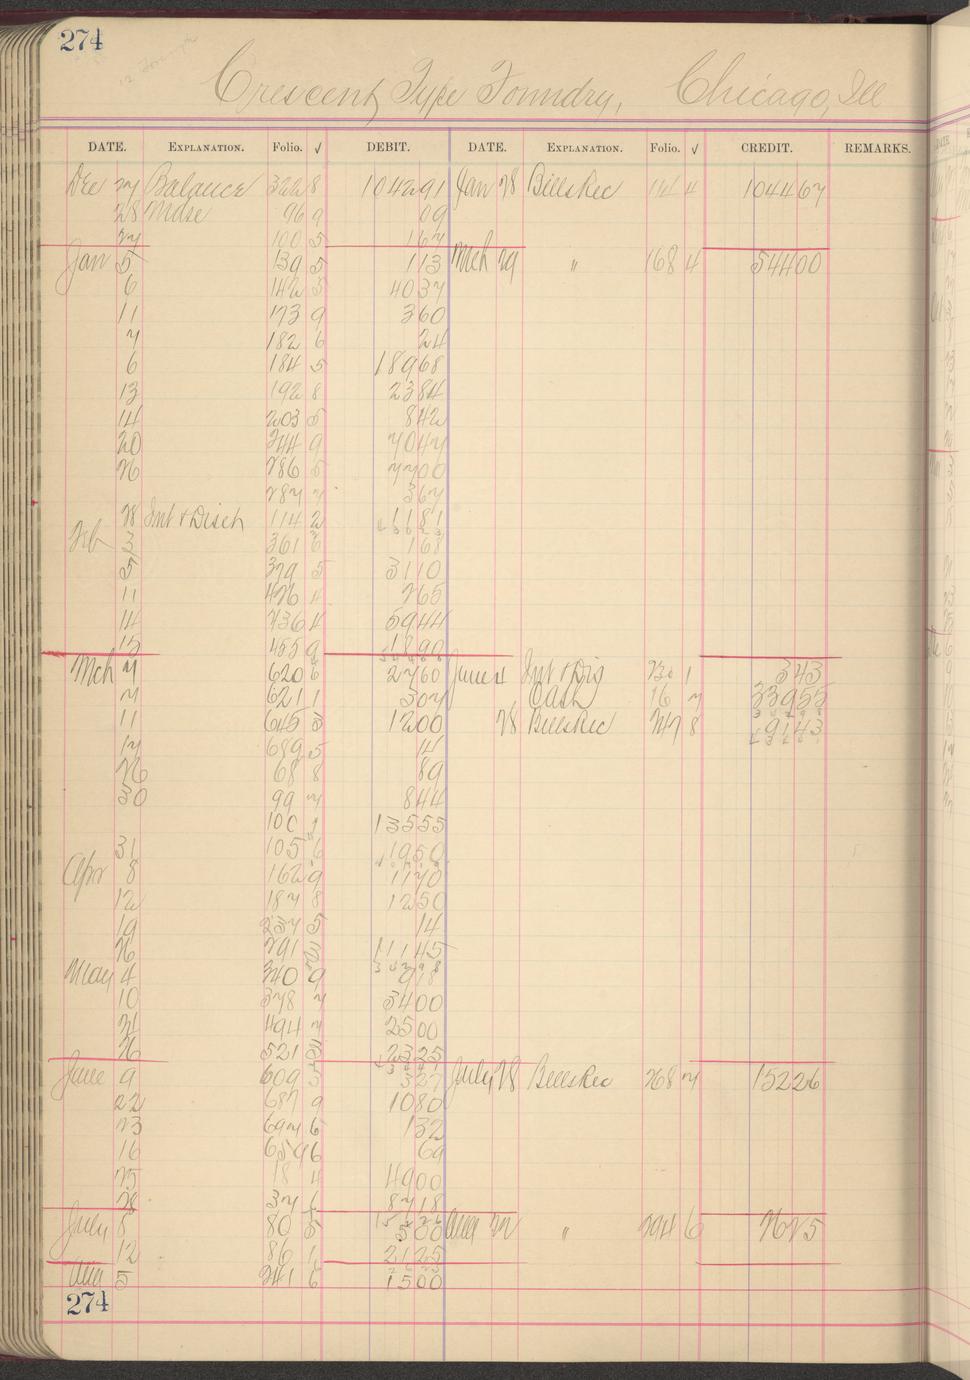 274
Crescent Type Foundry, Chicago, Ill
DATE. EXPLANATION. Folio. √ DEBIT. DATE. EXPLANATION. Folio. √ CREDIT. REMARKS.
Dec 27 Balance 322 8 1042 91 Jan 28 Bills Rec 1044 67
28 Mdse 96 9 09
27 100 5 1 67
Jan 5 139 5 1 13 Mch 29 " 168 4 544 00
6 142 5 40 37
11 173 9 3 60
7 182 6 24
6 184 5 189 68
13 192 8 23 84
14 203 5 8 42
20 244 9 70 47
26 286 5 77 00
287 7 3 67
28 Int & Disch 114 2 11 81
Feb 3 361 6 1 68
5 379 5 31 10
11 426 4 2 65
14 436 4 59 44
15 455 9 18 90
Mch 7 620 6 27 60 June 4 Int & Dis 230 1 3 43
7 621 1 3 07 Cash 16 7 339 55
11 645 5 12 00 28 Bills Rec 247 8 91 43
17 689 5 14
26 68 8 89
30 99 7 8 44
100 1 135 55
31 105 6 19 50
Apr 8 162 9 11 70
12 187 8 12 50
19 237 5 14
26 291 5 111 45
May 4 340 9 9 18
10 378 7 34 00
21 494 7 25 00
26 521 5 23 25
June 9 609 5 3 27 July 28 Bills Rec 268 7 152 26
22 687 9 10 80
23 694 6 1 32
16 659 6 69
25 18 4 49 00
28 37 6 87 18
July 8 80 5 5 00 Aug 22 " 294 6 26 25
12 86 1 21 25
Aug 5 241 6 15 00
274